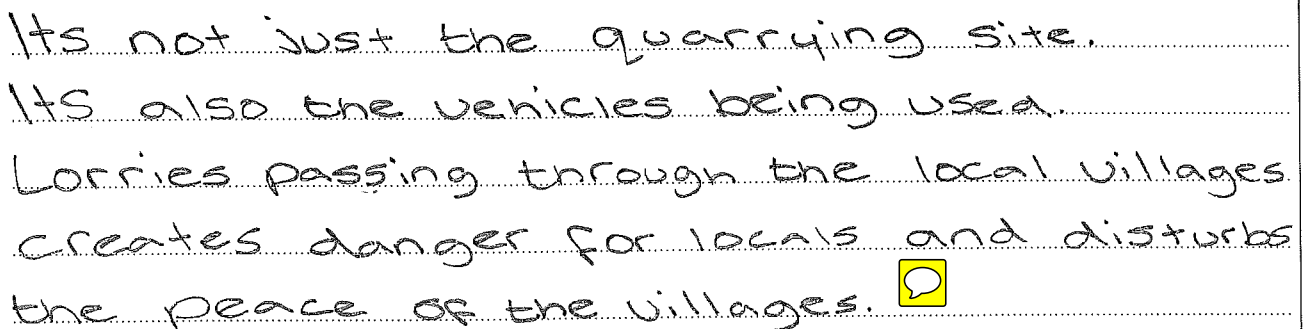 Its not just the quarrying site.
Its also the vehicles being used.
Lorries passing through the local villages
creates danger for locals and disturbs
the peace of the villages.